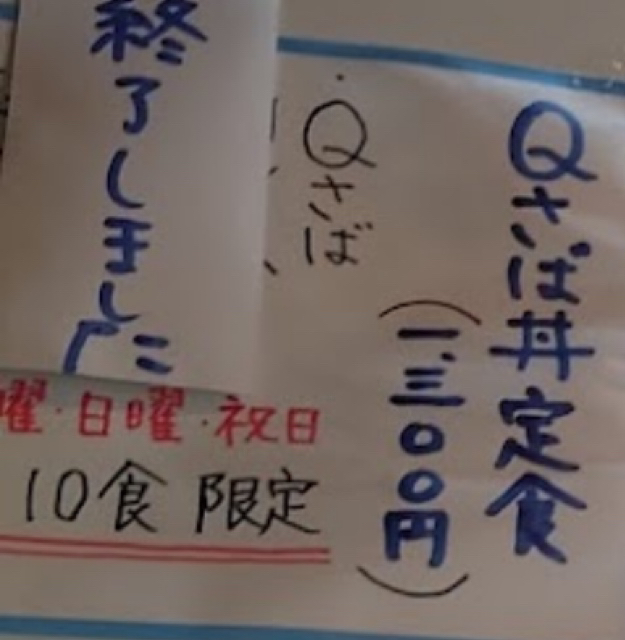 Qさば丼定食
（一、三〇〇円）
・Qさば
終了しました
曜・日曜・祝日
10食 限定